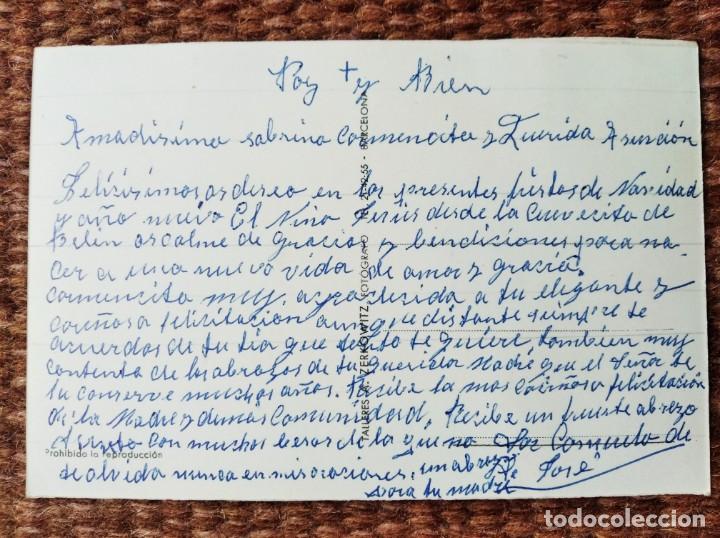 Paz + y Bien
Amadisima sobrina Carmencita y Querida Asunción
Felizisimas os deseo en las presentes fiestas de Navidad
y año nuevo El Niño Jesús desde la Cuevecita de
Belén os colme de gracias y bendiciones para na-
cer a una nueva vida de amor y gracia.
Carmencita muy agradecida a tu elegante y
cariñosa felicitación aunque distante siempre te
acuerdas de tu tia que tanto te quiere, también muy
contenta de los abrazos de tu querida Madre que el Señor te
la conserve muchos años. Recibe la mas cariñosa felicitación
de la Madre y demás Comunidad, Recibe un fuerte abrazo
con muchos besos de la que no
te olvida nunca en mis oraciones. un abrazo
para tu madre
Sor Consuelo de
S. José
TALLERES A. ZERKOWITZ, FOTOGRAFO BARCELONA
Prohibida la reproducción
todocoleccion.net